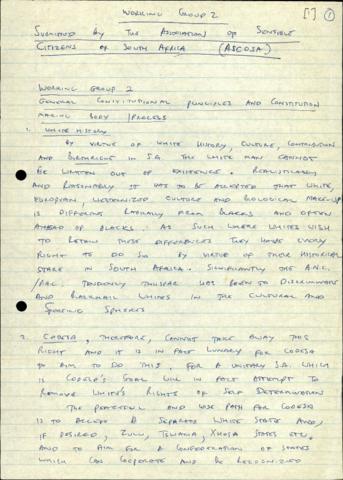 WORKING GROUP 2
[1] 1
SUBMITTED BY THE ASSOCIATION OF SENSIBLE
CITIZENS OF SOUTH AFRICA (ASCOSA)
WORKING GROUP 2
GENERAL CONSTITUTIONAL PRINCIPLES AND CONSTITUTION
MAKING BODY /PROCESS
1. WHITE HISTORY
BY VIRTUE OF WHITE HISTORY, CULTURE, CONTRIBUTION
AND BIRTHRIGHT IN S.A. THE WHITE MAN CANNOT
BE WRITTEN OUT OF EXISTENCE. REALISTICALLY
AND REASONABLY IT HAS TO BE ACCEPTED THAT WHITE,
EUROPEAN, WESTERNIZED CULTURE AND BIOLOGICAL MAKE-UP
IS DIFFERENT RACIALLY FROM BLACKS AND OFTEN
AHEAD OF BLACKS. AS SUCH WHERE WHITES WISH
TO RETAIN THESE DIFFERENCES THEY HAVE EVERY
RIGHT TO DO SO BY VIRTUE OF THEIR HISTORICAL
STAKE IN SOUTH AFRICA. SIGNIFICANTLY THE A.N.C.
/PAC. TENDENCY THUSFAR HAS BEEN TO DISCRIMINATE
AND BLACKMAIL WHITES IN THE CULTURAL AND
SPORTING SPHERES
2. CODESA, THEREFORE, CANNOT TAKE AWAY THIS
RIGHT AND IT IS IN FACT LUNACY FOR CODESA
TO AIM TO DO THIS. FOR A UNITARY S.A. WHICH
IS CODESA'S GOAL WILL IN FACT ATTEMPT TO
REMOVE WHITE'S RIGHTS OF SELF DETERMINATION
THE PEACEFUL AND WISE PATH FOR CODESA
IS TO ACCEPT A SEPARATE WHITE STATE AND,
IF DESIRED, ZULU, TSWANA, XHOSA STATES ETC.
AND TO AIM FOR A CONFEDERATION OF STATES
WHICH CAN COOPERATE AND BE RECOGNIZED